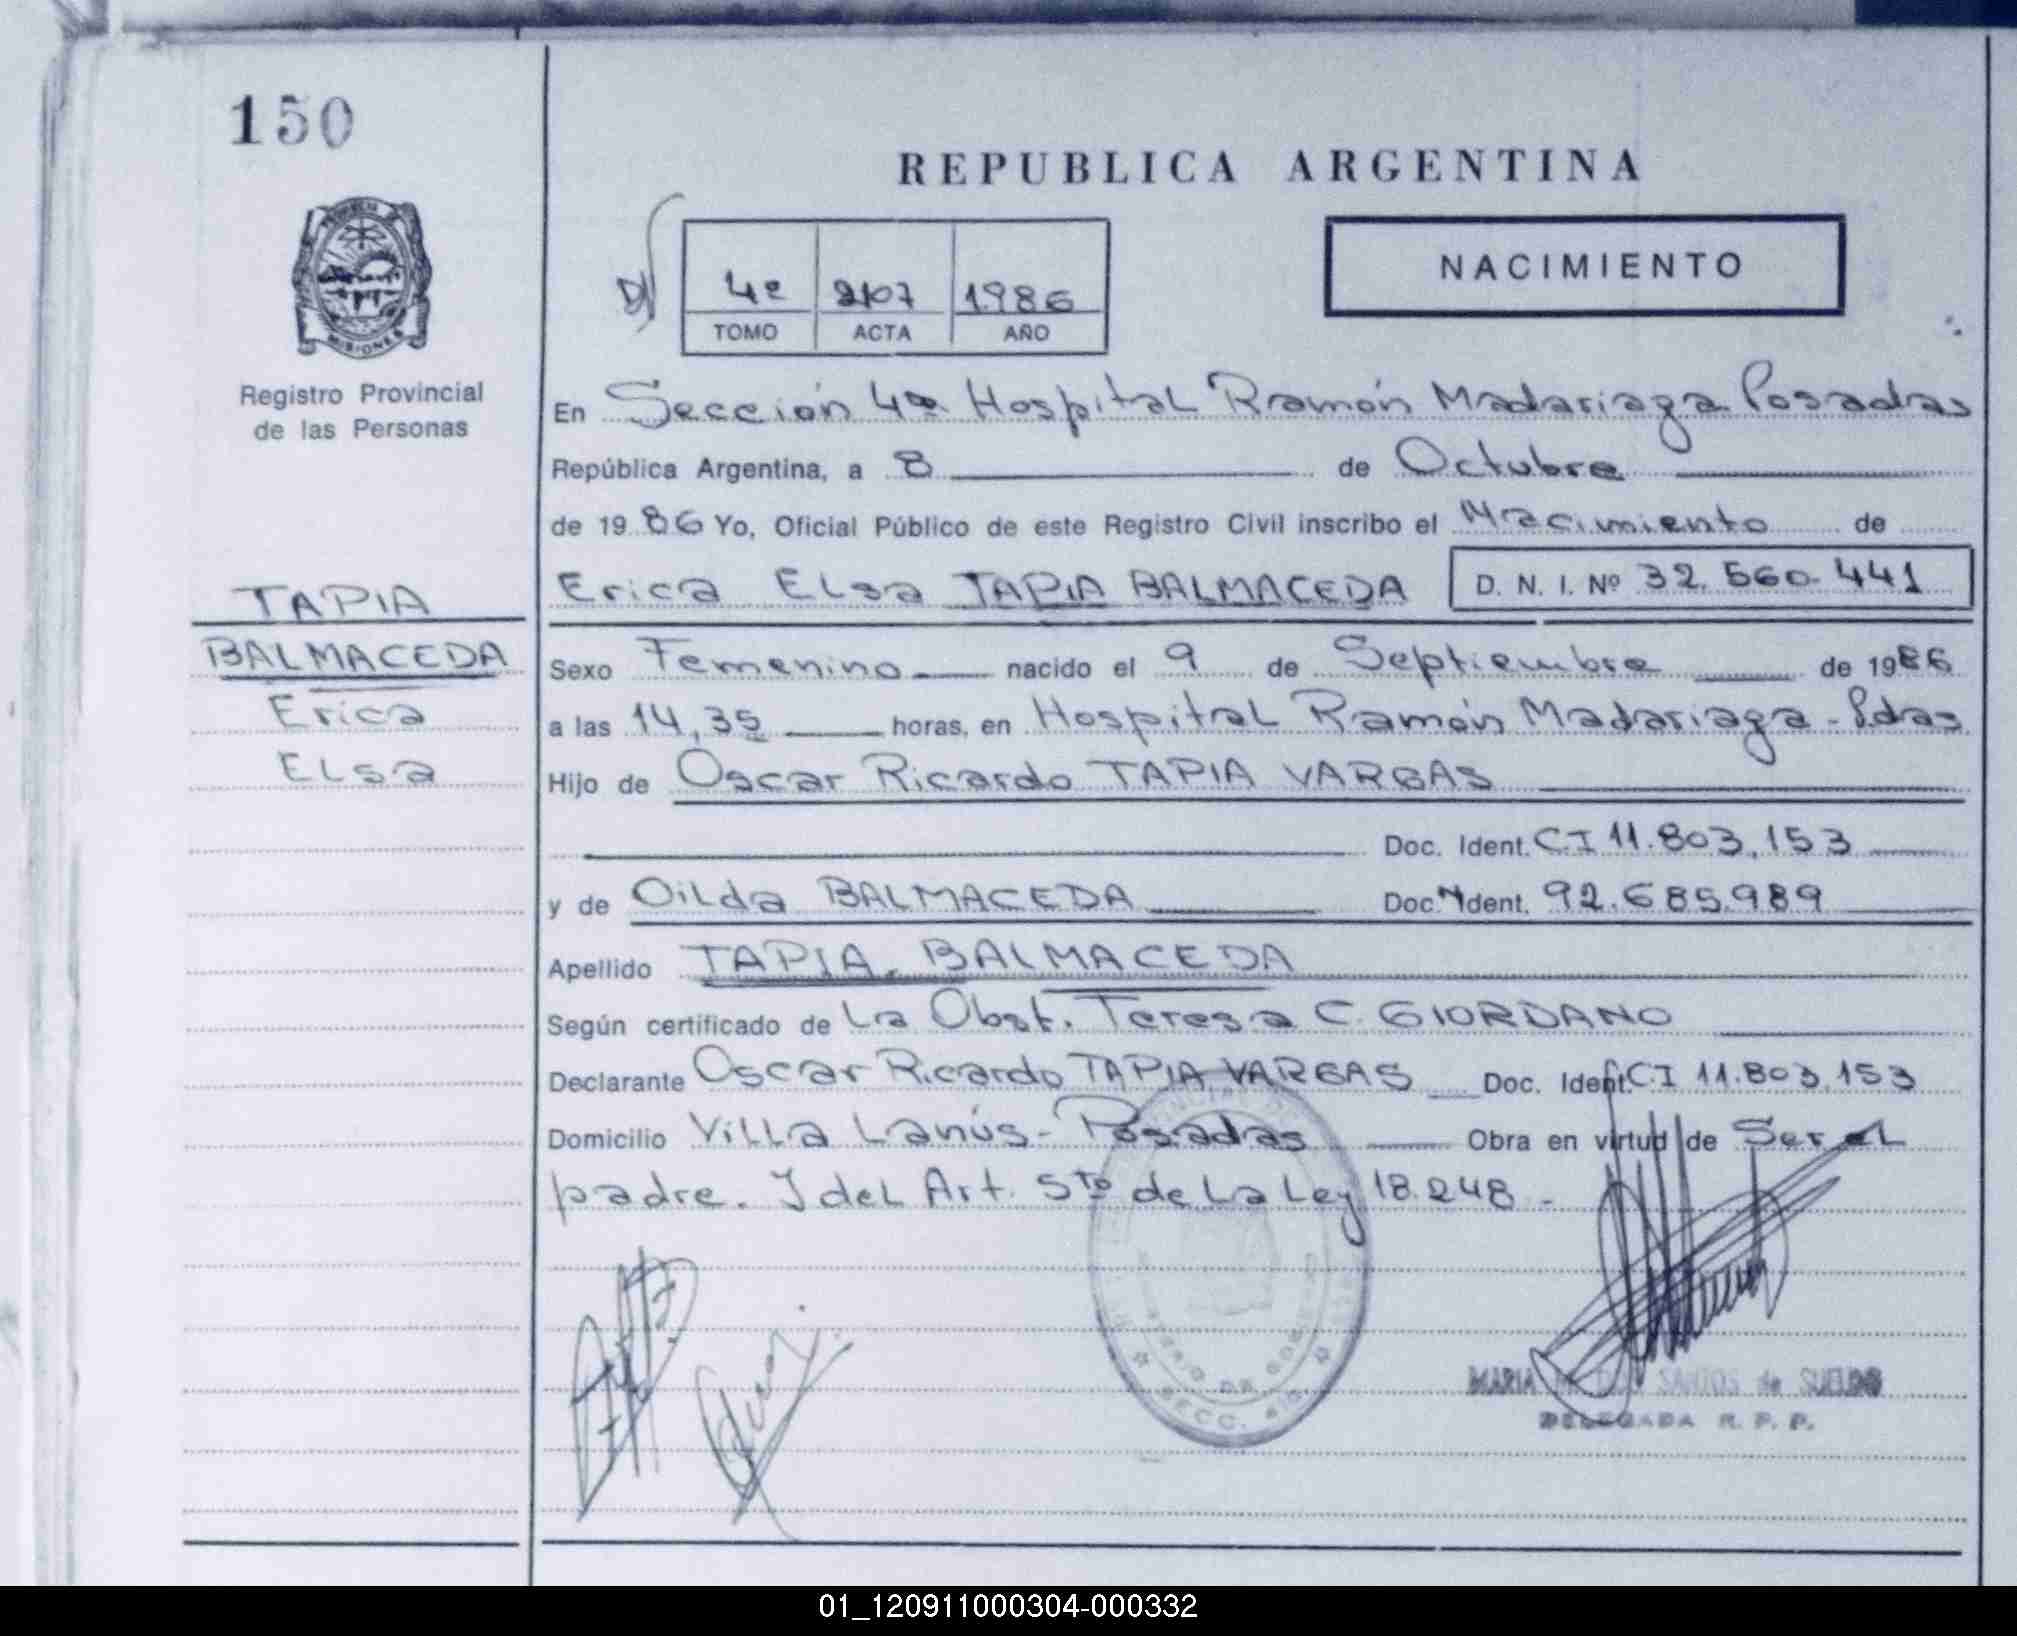 150
REPUBLICA ARGENTINA
NACIMIENTO
4º 2107 1986
TOMO ACTA AÑO
MISIONES
Registro Provincial
de las Personas
En Sección 4ª Hospital Ramón Madariaga Posadas
República Argentina, a 8 de Octubre
de 1986 Yo, Oficial Público de este Registro Civil inscribo el Nacimiento de
Erica Elsa TAPIA BALMACEDA D. N. I. Nº 32.560.441
TAPIA
BALMACEDA
Erica
Elsa
Sexo Femenino nacido el 9 de Septiembre de 1986
a las 14,35 horas, en Hospital Ramón Madariaga - Pdas
Hijo de Oscar Ricardo TAPIA VARGAS
Doc. Ident. CI 11.803.153
y de Oilda BALMACEDA Doc. Ident. 92.685.989
Apellido TAPIA BALMACEDA
Según certificado de La Obst. Teresa C. GIORDANO
Declarante Oscar Ricardo TAPIA VARGAS Doc. Ident. CI 11.803.153
Domicilio Villa Lanús - Posadas Obra en virtud de Ser el
padre. Y del Art. 5to de la Ley 18.248 -
SECC.
MARIA DOS SANTOS de SUELDO
DELEGADA R. P. P.
01_120911000304-000332